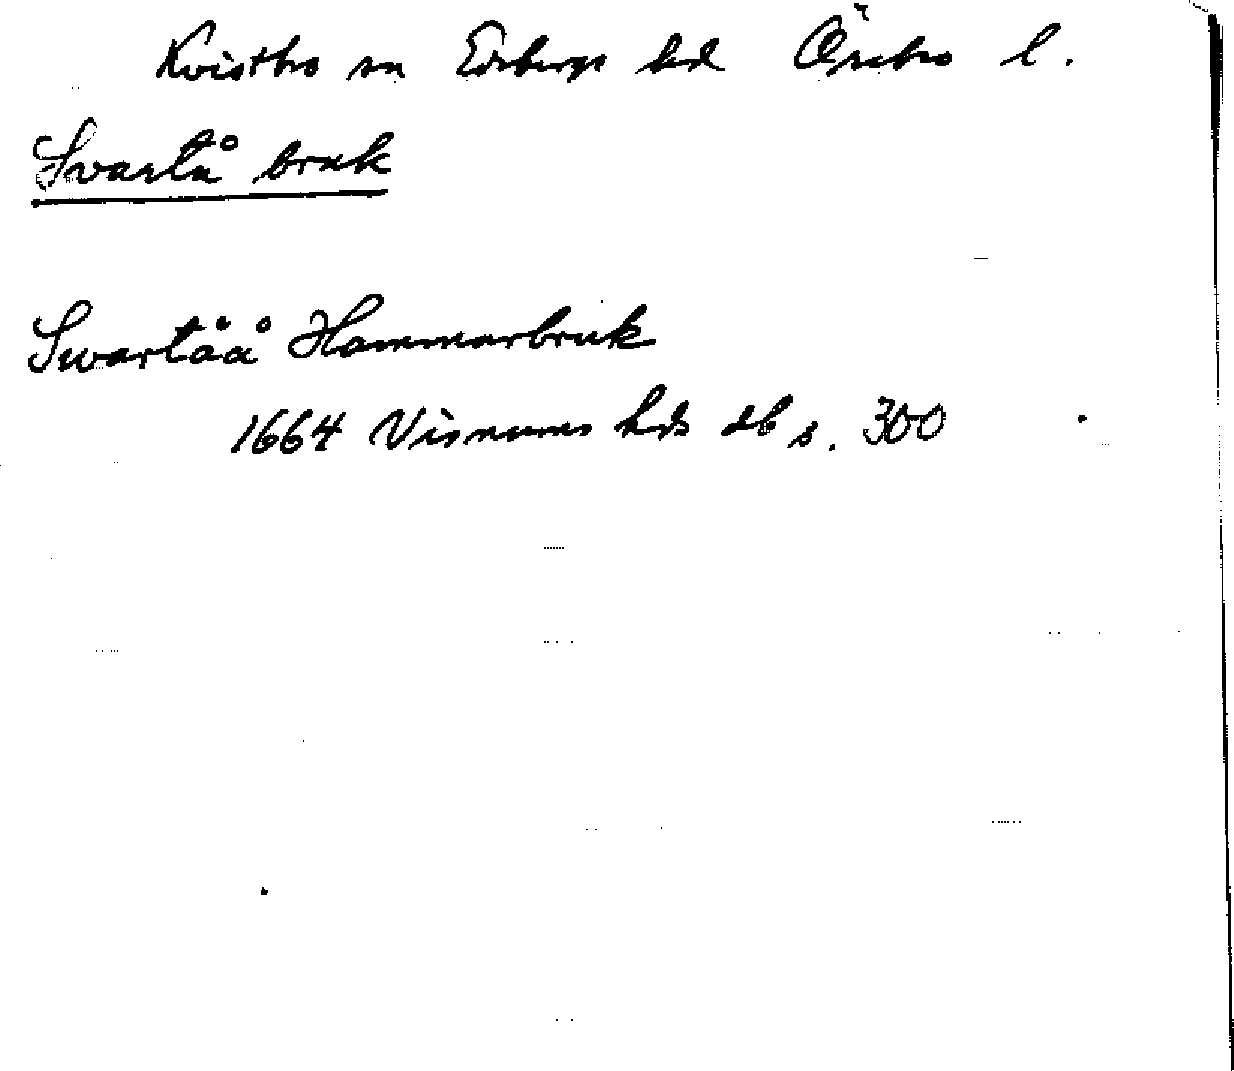 Kvistbro sn Edsbergs hd Örebro l.
Svartå bruk
Swartåå Hammarbruk
1664 Visnums hds db s. 300